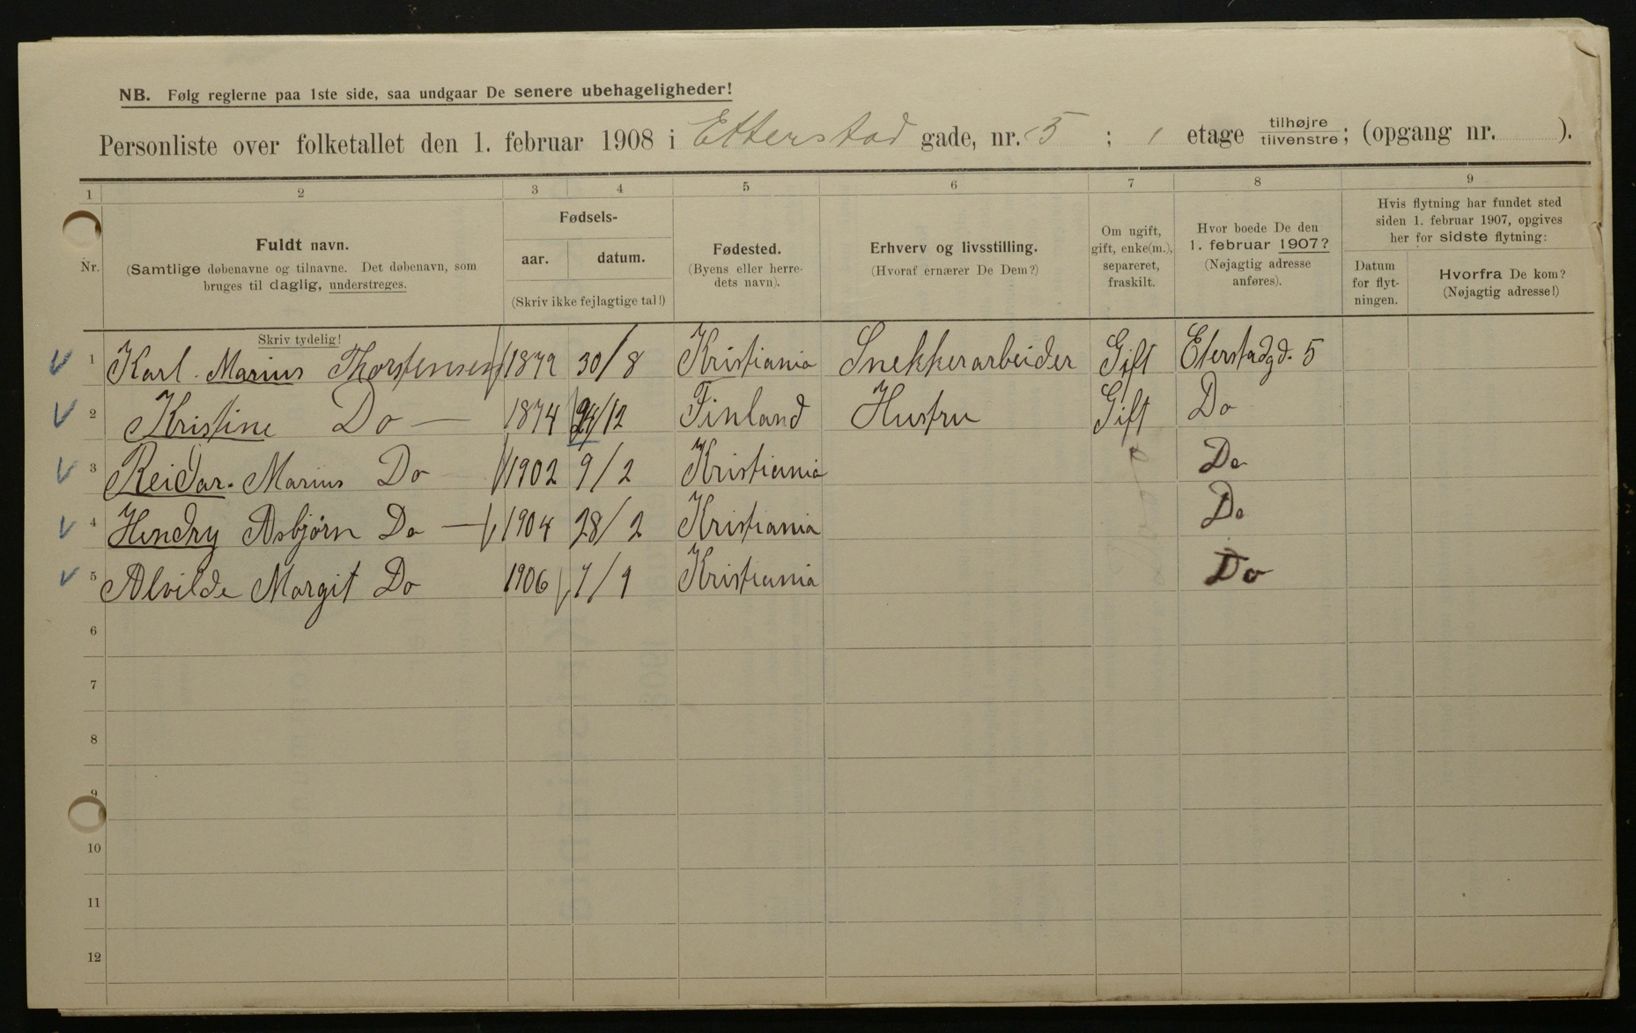 NB. Følg reglerne paa 1ste side, saa undgaar De senere ubehageligheder!
Personliste over folketallet den 1. februar 1908 i Etterstad gade, nr. 5 ; 1 etage tilhøjre tilvenstre; (opgang nr. ).
1 2 3 4 5 6 7 8 9
Nr.
Fuldt navn.
(Samtlige døbenavne og tilnavne. Det døbenavn, som
bruges til daglig, understreges.
Fødsels-
aar. datum.
(Skriv ikke fejlagtige tal!)
Fødested.
(Byens eller herre-
dets navn).
Erhverv og livsstilling.
(Hvoraf ernærer De Dem?)
Om ugift,
gift, enke(m.),
separeret,
fraskilt.
Hvor boede De den
1. februar 1907?
(Nøjagtig adresse
anføres).
Hvis flytning har fundet sted
siden 1. februar 1907, opgives
her for sidste flytning:
Datum
for flyt-
ningen.
Hvorfra De kom?
(Nøjagtig adresse!)
Skriv tydelig!
1 Karl. Marius Thorstensen 1879 30/8 Kristiania Snekkerarbeider Gift Eterstadgd. 5
2 Kristine Do — 1874 /12 Finland Hustru Gift Do
3 Reidar. Marius Do 1902 9/2 Kristiania Do
4 Hendry Asbjørn Do — 1904 28/2 Kristiania Do
5 Alvilde Margit Do 1906 7/9 Kristiania Do
6
7
8
9
10
11
12